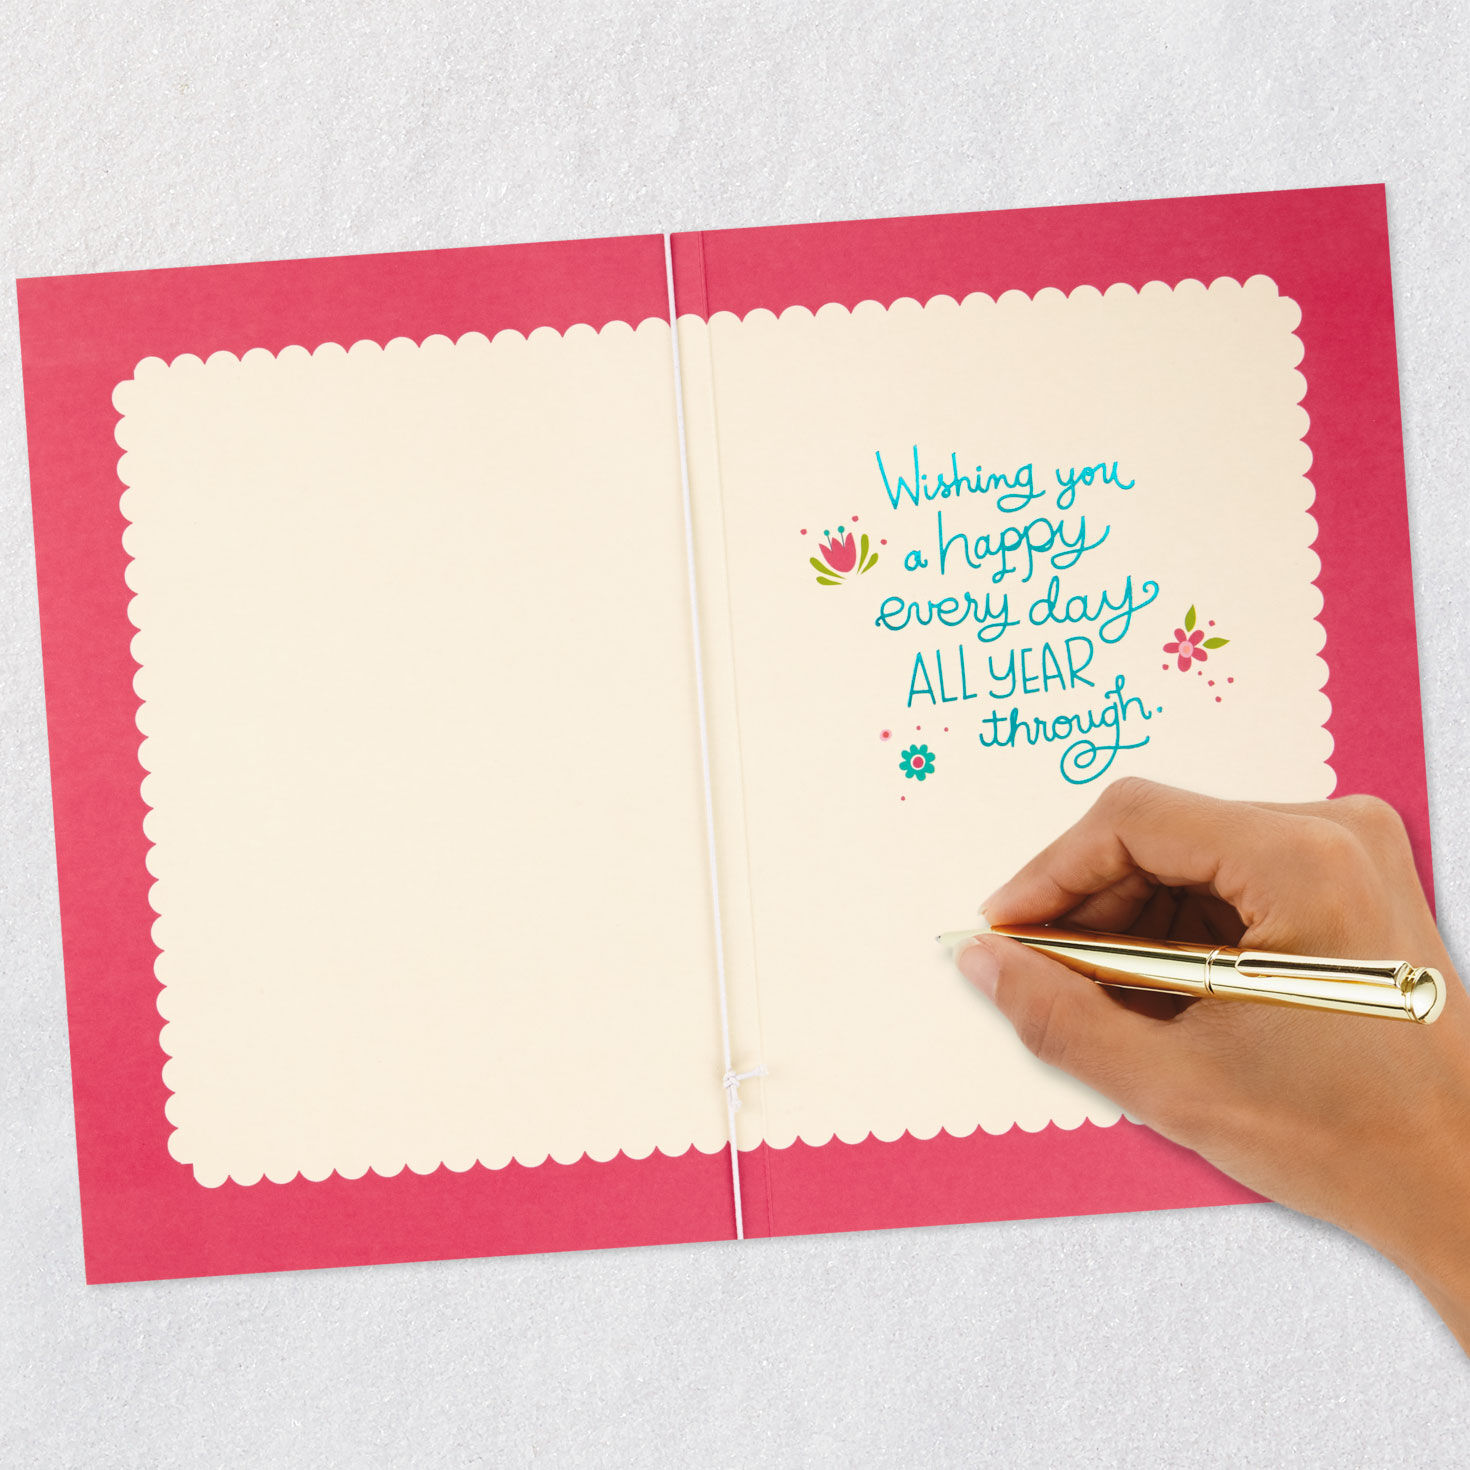 Wishing you
a happy
every day
ALL YEAR
through.